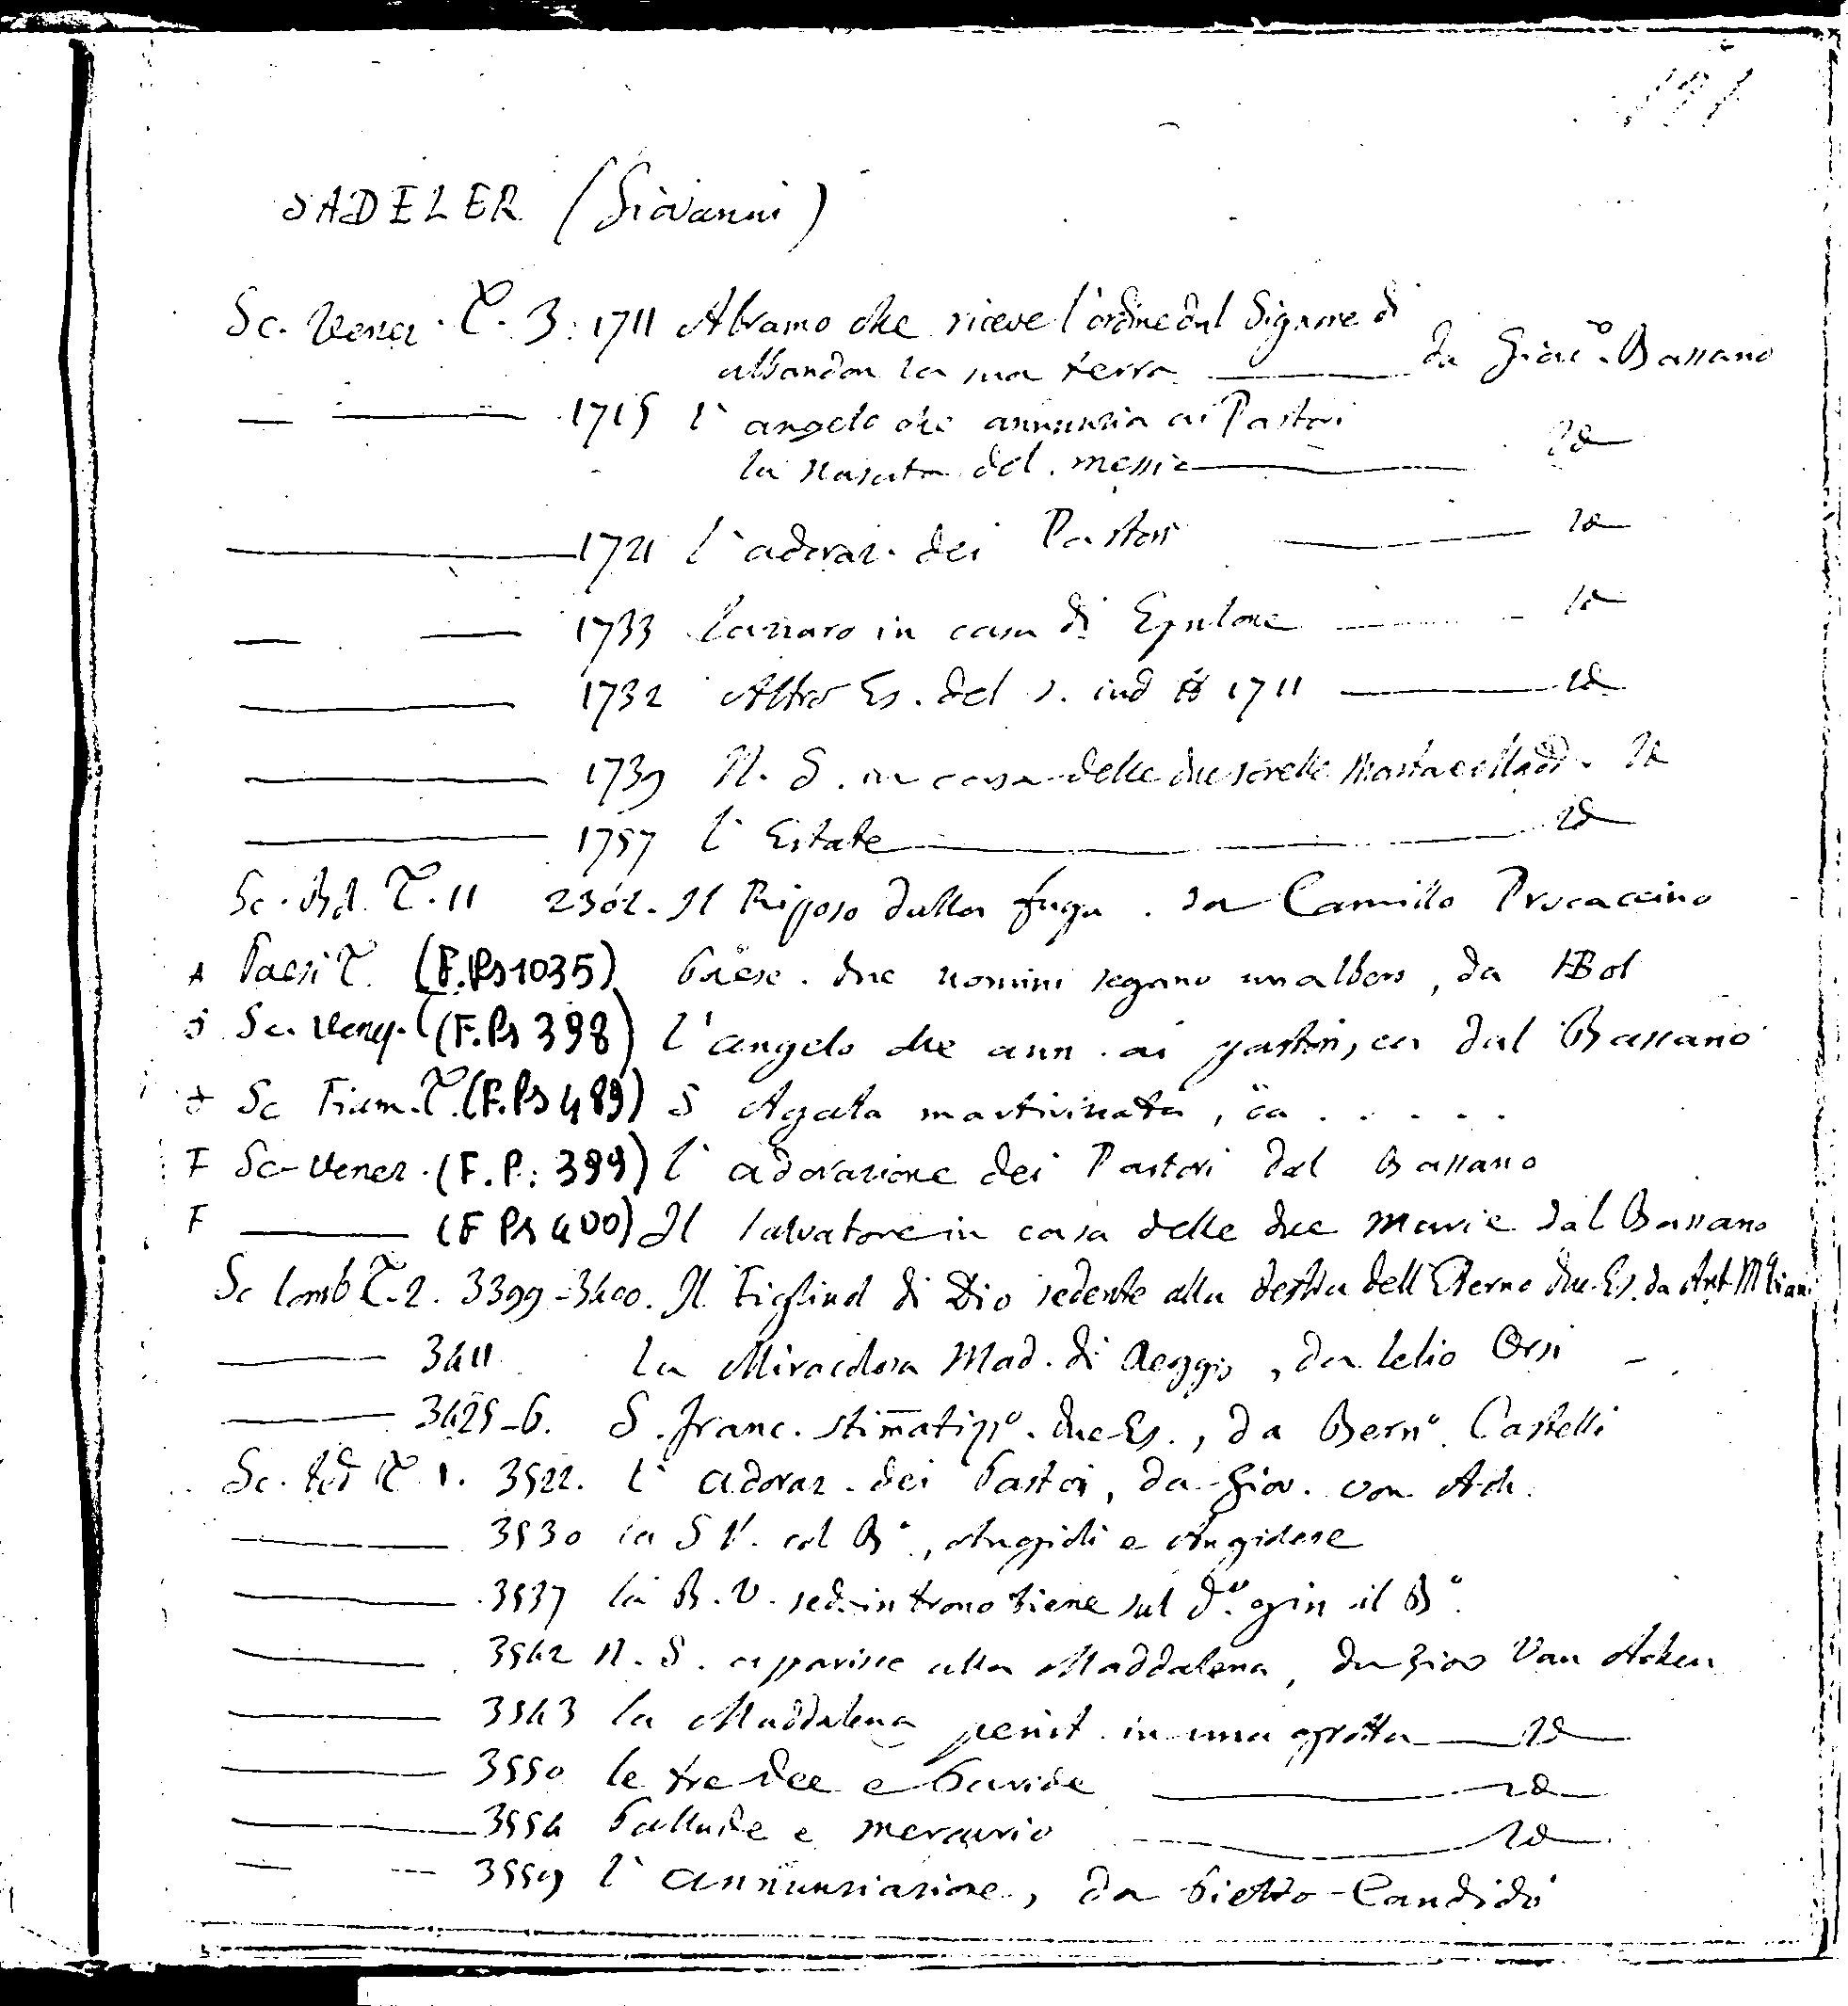 191
SADELER (Giovanni)
Sc. Venez. T. 3. 1711 Abramo che riceve l'ordine dal Signore di
abbandon la sua terra da Giac.º Bassano
1715 l'angelo che annunzia ai Pastori
la nascita del messia id
1721 l'adoraz. dei Pastori id
1733 Lazzaro in casa di Epulone id
1732 Altro Es. del s. ind 1711 id
1739 N. S. in casa delle due sorelle Marta e Madd. id
1757 l'Estate id
Sc. Bol. T. 11 2302. Il Riposo dalla fuga. da Camillo Procaccino
Paesi T. (F. Ps 1035) Paese. due uomini segano un albero, da HBol
Sc. Venez. (F. Ps 398) l'angelo che ann. ai pastori, ca dal Bassano
Sc Fiam. T. (F. Ps 489) S Agata martirizzata, ca . . . . .
F Sc. Venez. (F. P. 399) l'adorazione dei Pastori dal Bassano
F (F Ps 400) Il Salvatore in casa delle due Marie dal Bassano
Sc Lomb T. 2. 3399-3400. Il Figliuol di Dio sedente alla destra dell'Eterno due Es. da Ant.
3411 La Miracolosa Mad. di Reggio, da Lelio Orsi
3425-6. S. Franc. stimatizº. due Es., da Bernº. Castelli
Sc. ted T. 1. 3522. l'adoraz. dei Pastori, da Giov. von Ach.
3530 la S V. col Bº., Angioli e Angiolese
3537 la B. V. sed. in trono tiene sul dº. gin il Bº.
3542 N. S. apparisce alla Maddalena, da Giov Van Achen
3543 la Maddalena penit. in una grotta id
3550 le tre Dee e Paride id
3554 Pallade e Mercurio id
3559 l'annunziazione, da Pietro Candido